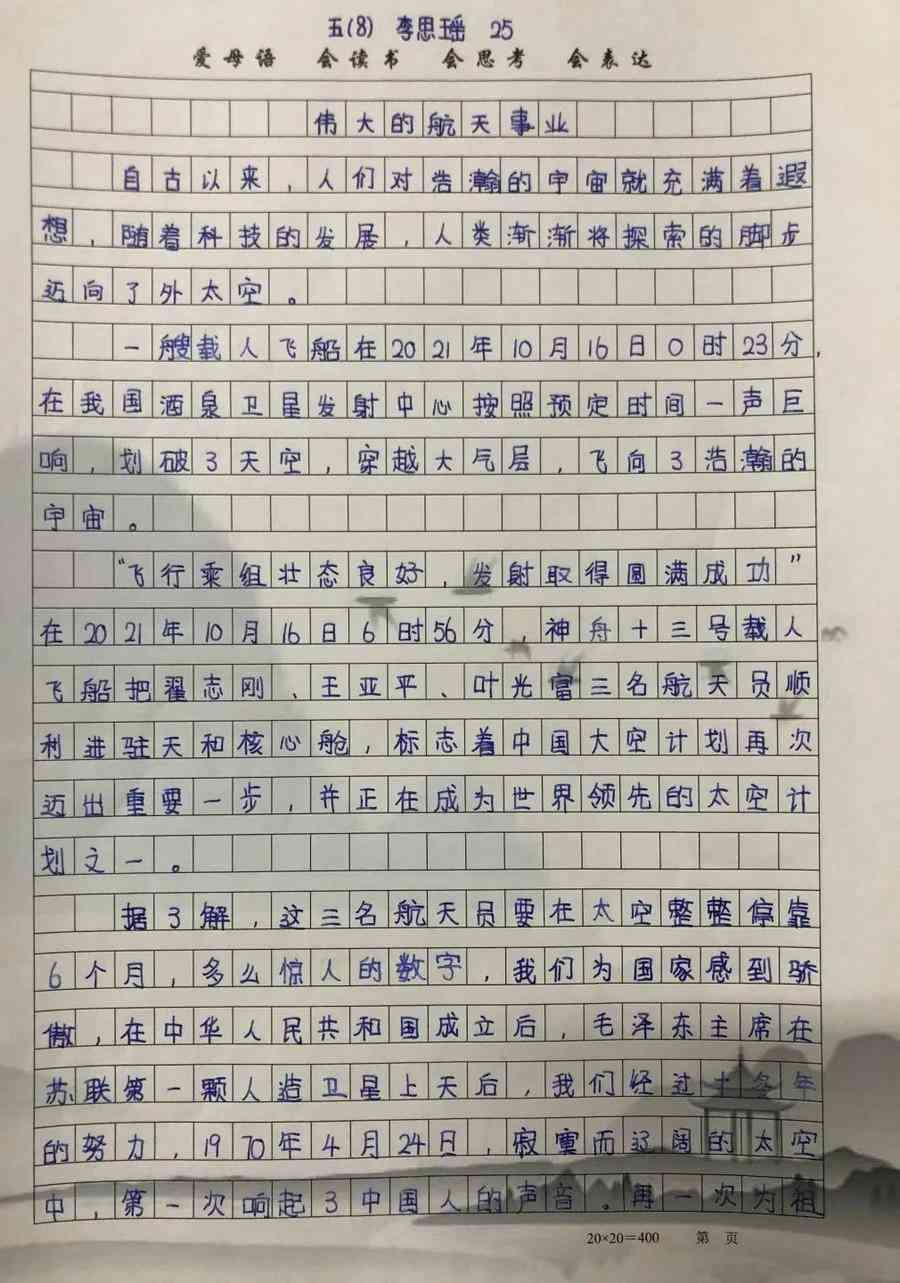 五(8) 李思瑶 25
爱母语 会读书 会思考 会表达
伟大的航天事业
自古以来，人们对浩瀚的宇宙就充满着遐
想，随着科技的发展，人类渐渐将探索的脚步
迈向了外太空。
一艘载人飞船在2021年10月16日0时23分，
在我国酒泉卫星发射中心按照预定时间一声巨
响，划破了天空，穿越大气层，飞向了浩瀚的
宇宙。
“飞行乘组壮态良好，发射取得圆满成功”
在2021年10月16日6时56分，神舟十三号载人
飞船把翟志刚、王亚平、叶光富三名航天员顺
利进驻天和核心舱，标志着中国大空计划再次
迈出重要一步，并正在成为世界领先的太空计
划之一。
据了解，这三名航天员要在太空整整停靠
6个月，多么惊人的数字，我们为国家感到骄
傲，在中华人民共和国成立后，毛泽东主席在
苏联第一颗人造卫星上天后，我们经过十多年
的努力，1970年4月24日，寂寞而辽阔的太空
中，第一次响起了中国人的声音。再一次为祖
20×20=400 第 页